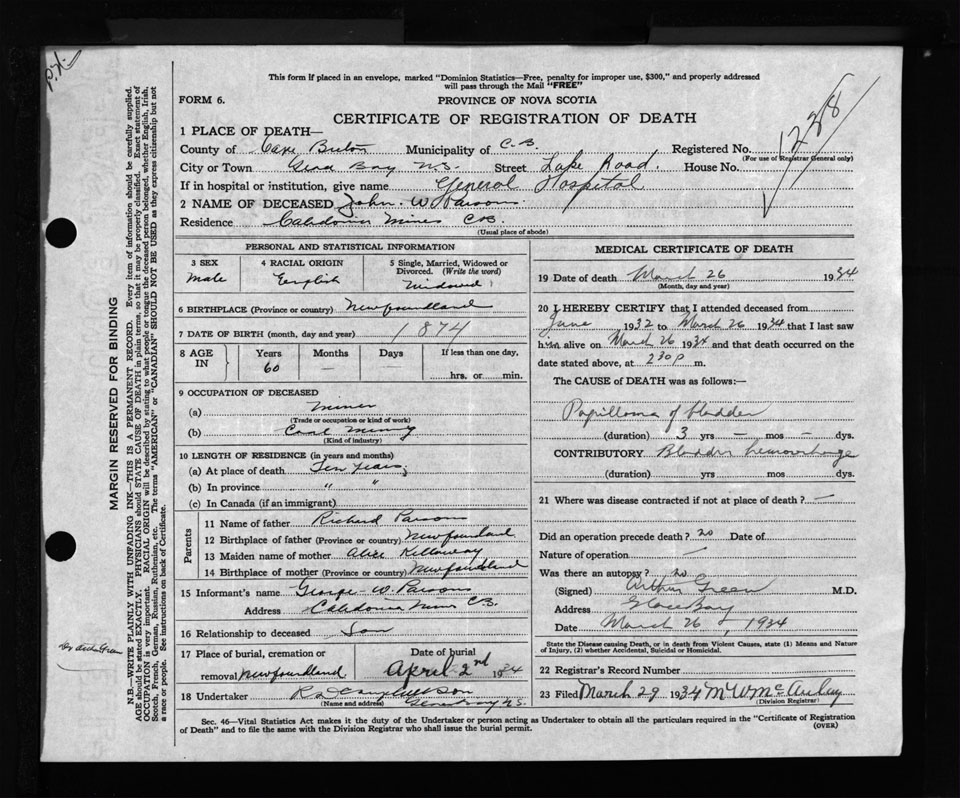 This form if placed in an envelope, marked "Dominion Statistics—Free, penalty for improper use, $300," and properly addressed
will pass through the Mail "FREE"
FORM 6.
PROVINCE OF NOVA SCOTIA
CERTIFICATE OF REGISTRATION OF DEATH
1288
1 PLACE OF DEATH—
County of Cape Breton Municipality of C.B. Registered No.
(For use of Registrar General only)
City or Town Glace Bay N.S. Street Lake Road House No.
If in hospital or institution, give name General Hospital
2 NAME OF DECEASED John W Parsons
Residence Caledonia Mines C.B.
(Usual place of abode)
PERSONAL AND STATISTICAL INFORMATION
3 SEX
male
4 RACIAL ORIGIN
English
5 Single, Married, Widowed or
Divorced. (Write the word)
Widowed
6 BIRTHPLACE (Province or country) Newfoundland
7 DATE OF BIRTH (month, day and year) 1874
8 AGE
IN
Years
60
Months
—
Days
—
If less than one day,
hrs. or min.
9 OCCUPATION OF DECEASED
(a) Miner
(Trade or occupation or kind of work)
(b) Coal Mining
(Kind of industry)
10 LENGTH OF RESIDENCE (in years and months)
(a) At place of death Ten years
(b) In province " "
(c) In Canada (if an immigrant)
Parents
11 Name of father Richard Parsons
12 Birthplace of father (Province or country) Newfoundland
13 Maiden name of mother Alice Kelloway
14 Birthplace of mother (Province or country) Newfoundland
15 Informant's name George W. Parsons
Address Caledonia Mines C.B.
16 Relationship to deceased Son
17 Place of burial, cremation or
removal Newfoundland
Date of burial
April 2nd 1934
18 Undertaker Son
(Name and address) Glace Bay N.S.
MEDICAL CERTIFICATE OF DEATH
19 Date of death March 26 1934
(Month, day and year)
20 I HEREBY CERTIFY that I attended deceased from
June 1932 to March 26 1934 that I last saw
him alive on March 26 1934 and that death occurred on the
date stated above, at 2 30 p m.
The CAUSE of DEATH was as follows:—
Papilloma of bladder
(duration) 3 yrs — mos — dys.
CONTRIBUTORY Bladder hemorrhage
(duration) yrs. mos. dys.
21 Where was disease contracted if not at place of death? —
Did an operation precede death? no Date of
Nature of operation —
Was there an autopsy? no
(Signed) Arthur Green M.D.
Address Glace Bay
Date March 26, 1934
State the Disease causing Death, or in death from Violent Causes, state (1) Means and Nature
of Injury, (2) whether Accidental, Suicidal or Homicidal.
22 Registrar's Record Number
23 Filed March 29 1934 M W McAulay
(Division Registrar)
Sec. 46—Vital Statistics Act makes it the duty of the Undertaker or person acting as Undertaker to obtain all the particulars required in the "Certificate of Registration
of Death" and to file the same with the Division Registrar who shall issue the burial permit.
(OVER)
MARGIN RESERVED FOR BINDING
N.B.—WRITE PLAINLY WITH UNFADING INK—THIS IS A PERMANENT RECORD. Every item of information should be carefully supplied.
AGE should be stated EXACTLY. PHYSICIANS should STATE CAUSE OF DEATH in plain terms, so that it may be properly classified. Exact statement of
OCCUPATION is very important. RACIAL ORIGIN will be described by stating to what people or tongue the deceased person belonged, whether English, Irish,
Scotch, French, German, Russian, Ruthenian, etc. The terms "AMERICAN" or "CANADIAN" SHOULD NOT BE USED as they express citizenship but not
a race or people. See instructions on back of Certificate.